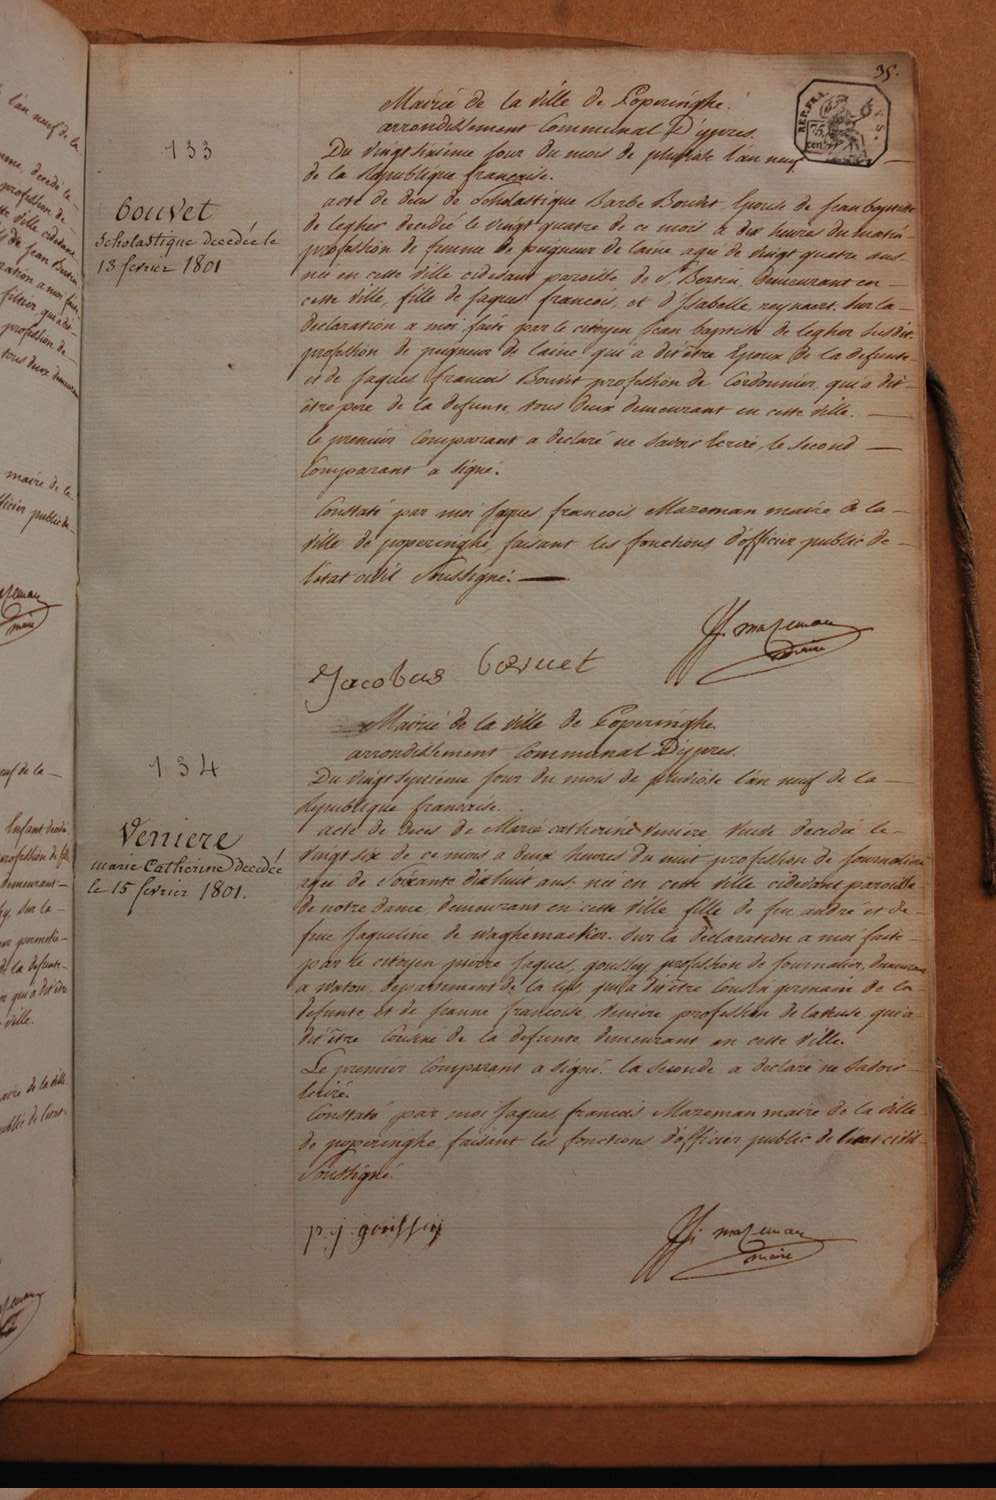 35.
REP. FRA.
75
cent.
133
Bouvet
Scholastique decedée le
13 fevrier 1801
Mairie de la ville de Poperinghe.
arrondissement Communal D'ypres.
Du vingt sixième jour du mois de pluviose l'an neuf
de la Republique française.
acte de décès de Scholastique Barbe Bouvet Epouse de Jean baptiste
de legher decedée le vingt quatre de ce mois à dix heures du matin
profession de femme de peigneur de laine agée de vingt quatre ans
née en cette ville cidevant paroisse de St Bertin, demeurant en
cette ville, fille de jaques francois, et d'Isabelle reynaert. Sur la
declaration a moi faite par le citoyen jean baptiste de legher susdit,
profession de peigneur de laine qui a dit être Epoux de la defunte
et de jaques francois Bouvet profession de Cordonnier, qui a dit
être pere de la defunte, tous deux demeurant en cette ville.
le premier Comparant a declaré ne savoir Ecrire, le second
Comparant a signé.
Constaté par moi jaques francois Mazeman maire de la
ville de poperinghe, faisant les fonctions d'officier public de
l'etat civil Soussigné.
J. f. mazeman
maire
Jacobus Bovuet
134
Veniere
marie Catherine decedée
le 15 fevrier 1801.
Mairie de la ville de Poperinghe
arrondissement Communal D'ypres.
Du vingt septieme jour du mois de pluviose l'an neuf de la
Republique française.
acte de deces de Marie catherine Veniere, Veuve decedée le
vingt six de ce mois a deux heures du nuit profession de journaliere
agée de Soixante dix huit ans, née en cette ville cidevant paroisse
de notre dame, demeurant en cette ville fille de feu andré et de
feue Jaqueline de waghemacker. Sur la declaration a moi faite
par le citoyen pierre jaques, goussey profession de journalier, demeurant
a watou, departement de la Lys, qui a dit être Cousin germain de la
defunte et de Jeanne francoise Veniere profession de qui a
dit être Cousine de la defunte demeurant en cette ville.
Le premier Comparant a signé. la seconde a declaré ne Savoir
Ecrire.
Constaté par moi jaques francois Mazeman maire de la ville
de poperinghe, faisant les fonctions d'officier public de l'etat civil
Soussigné.
p. j. goussey
J. f. mazeman
maire